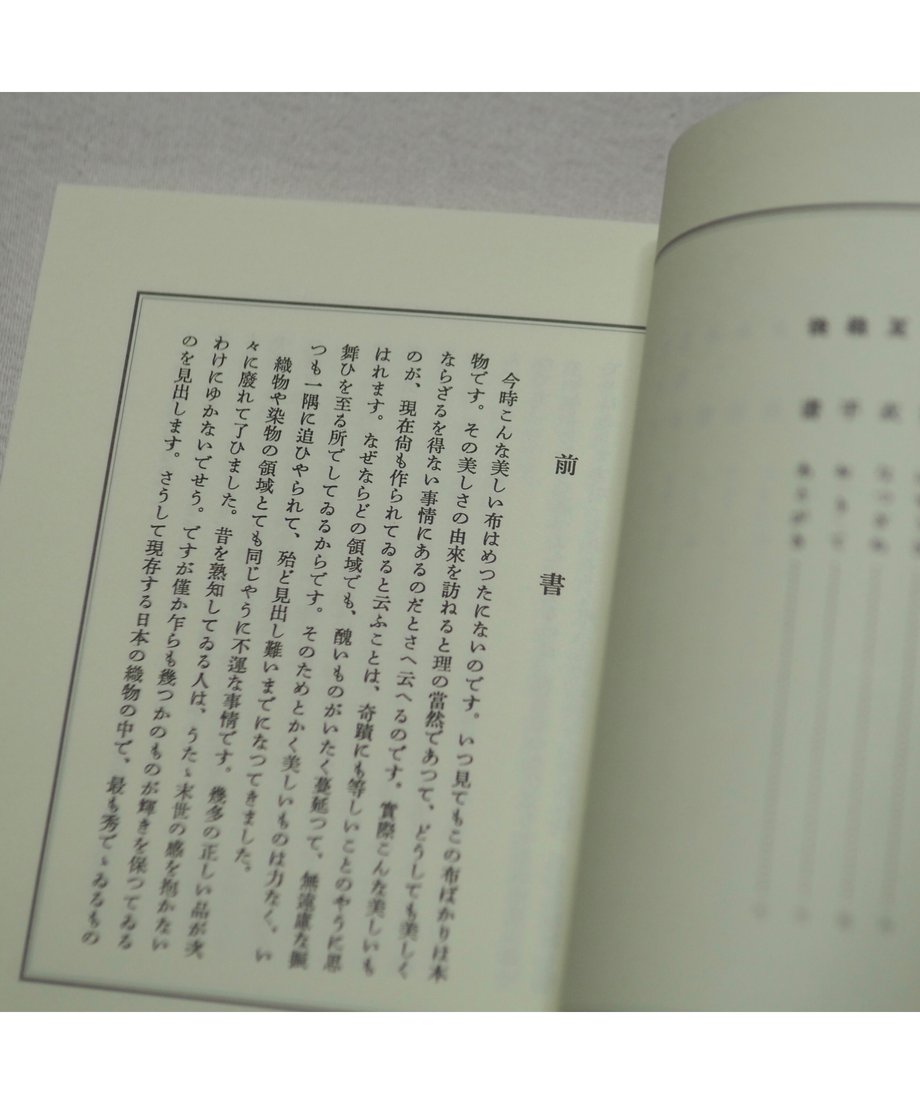 前書
今時こんな美しい布はめつたにないのです。いつ見てもこの布ばかりは本
物です。その美しさの由來を訪ねると理の當然であつて、どうしても美しく
ならざるを得ない事情にあるのだとさへ云へるのです。實際こんな美しいも
のが、現在尙も作られてゐると云ふことは、奇蹟にも等しいことのやうに思
はれます。なぜならどの領域でも、醜いものがいたく蔓延つて、無遠慮な振
舞ひを至る所でしてゐるからです。そのためとかく美しいものは力なく、い
つも一隅に追ひやられて、殆ど見出し難いまでになつてきました。
織物や染物の領域とても同じやうに不運な事情です。幾多の正しい品が次
々に廢れて了ひました。昔を熟知してゐる人は、うたゝ末世の感を抱かない
わけにゆかないでせう。ですが僅か乍らも幾つかのものが輝きを保つてゐる
のを見出します。さうして現存する日本の織物の中で、最も秀でゝゐるもの